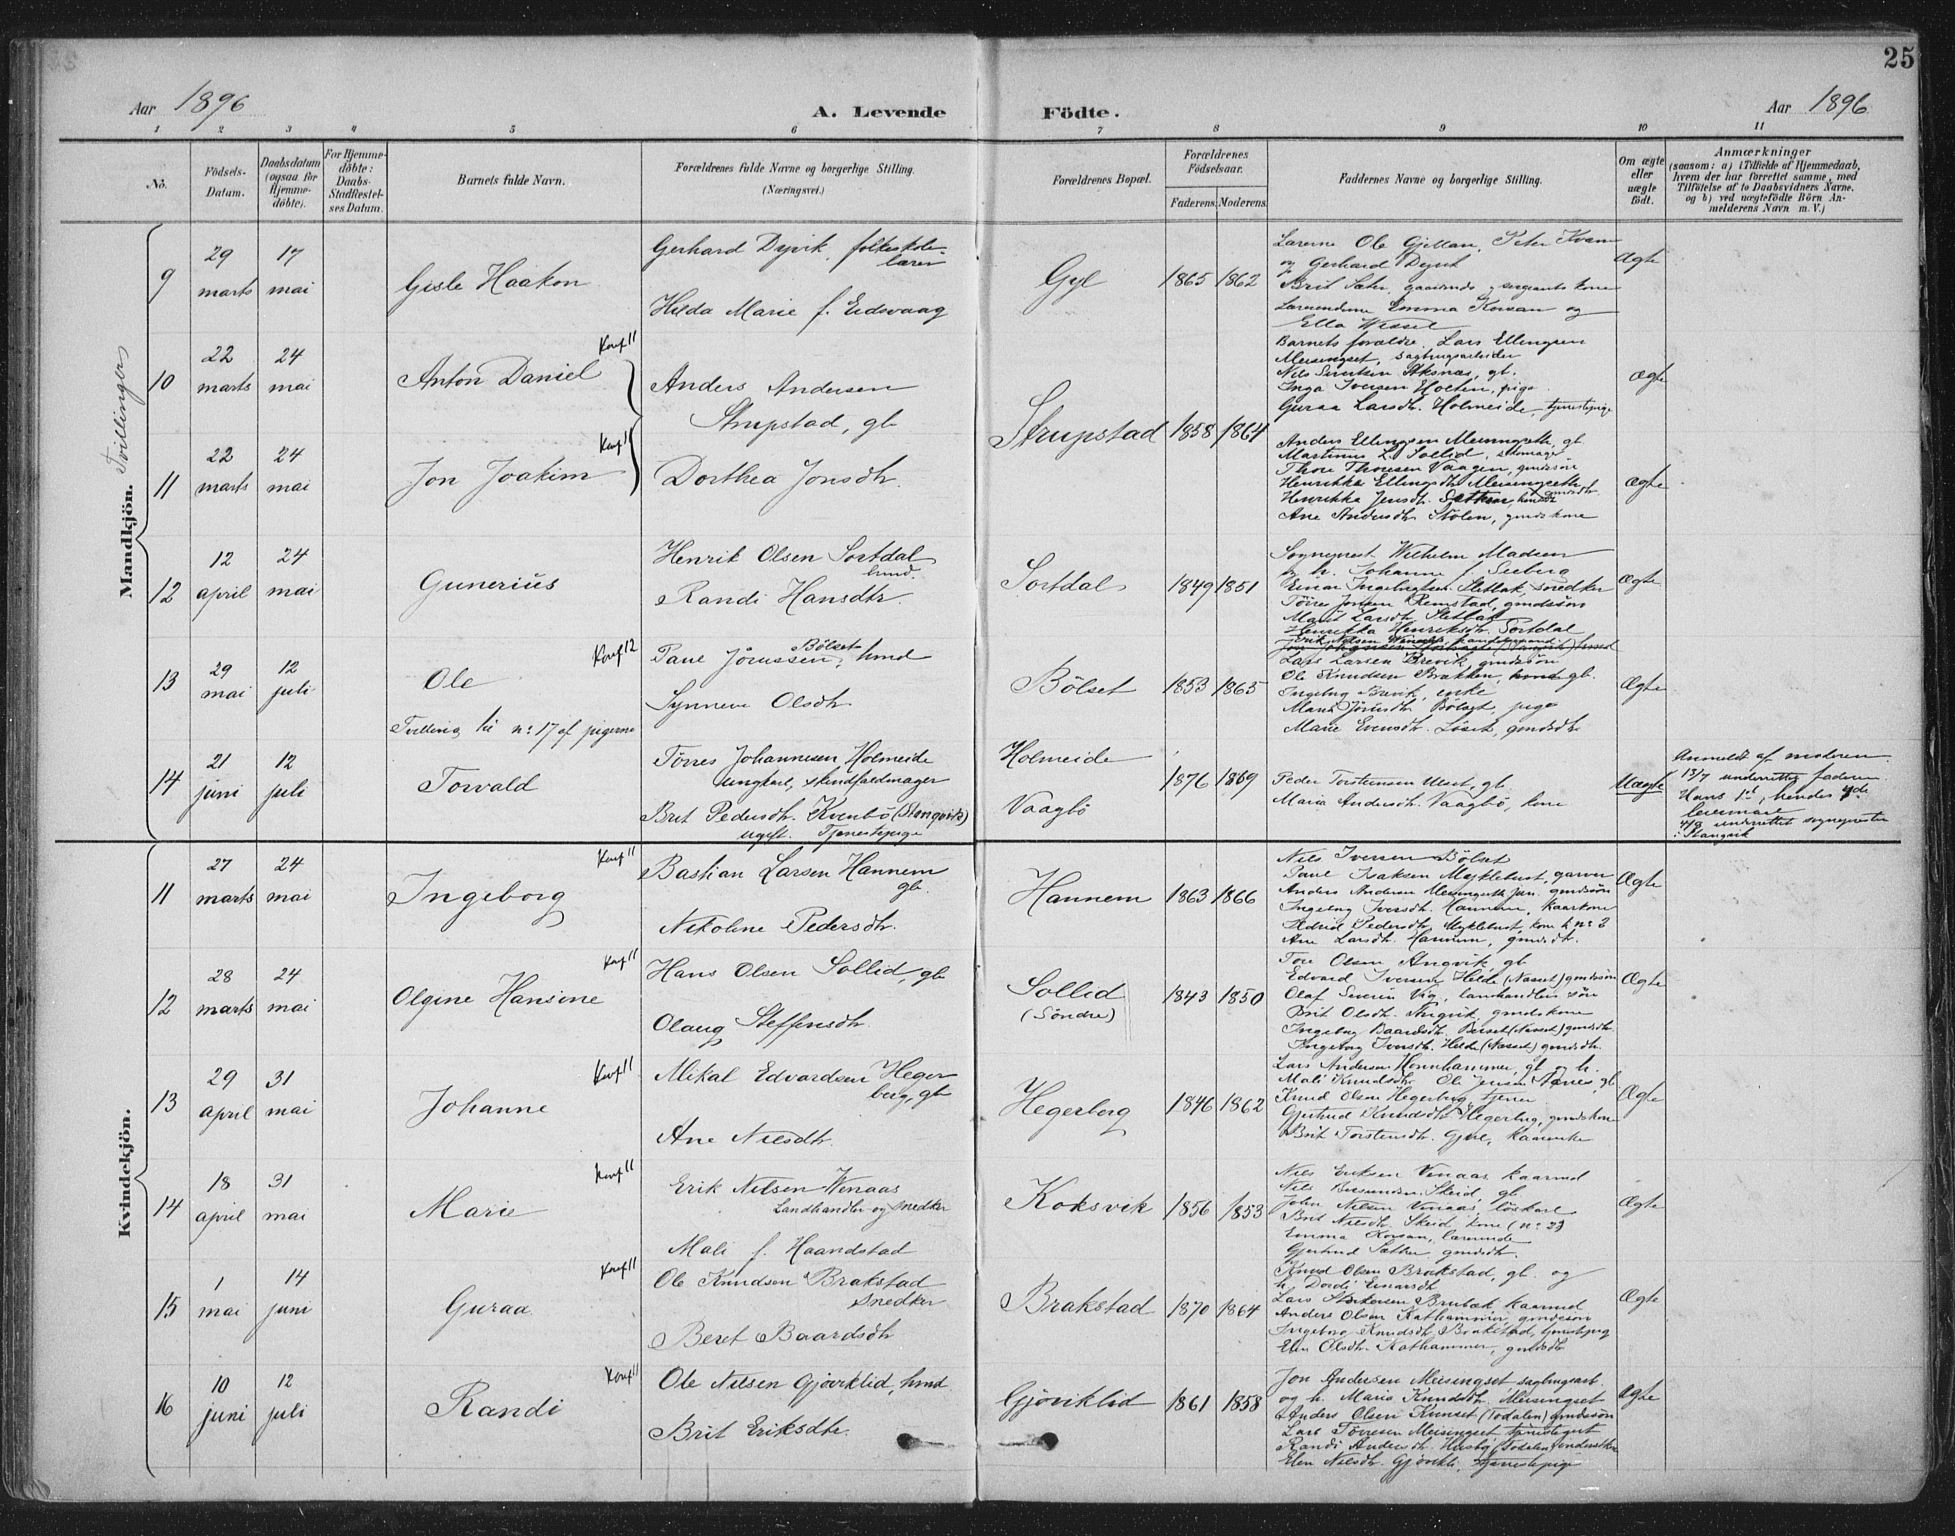 25
Aar 1896
A. Levende Födte.
Aar 1896
1 2 3 4 5 6 7 8 9 10 11
No.
Födsels-Datum.
Daabsdatum (ogsaa for Hjemmedöbte).
For Hjemmedöbte: Daabs-Stadfæstelses Datum.
Barnets fulde Navn.
Forældrenes fulde Navne og borgerlige Stilling.
(Næringsvei.)
Forældrenes Bopæl.
Forældrenes Födselsaar.
Faderens. Moderens.
Faddernes Navne og borgerlige Stilling.
Om ægte eller uægte födt.
Anmærkninger
(saasom: a) i Tilfælde af Hjemmedaab,
hvem der har forrettet samme, med
Tilföielse af to Daabsvidners Navne,
og b) ved uægtefödte Börn An-
melderens Navn m. V.)
Mandkjön.
Tvillinger
9
29 marts
17 mai
Gisle Haakon
Gerhard Dyvik, folkeskole-
lærer
Hilda Marie f. Eidsvaag
Gyl
1865 1862
Lærerne Ole Gjellan, Peter Kvam
og Gerhard Dyvik
Brit Sæter,
Lærerinderne Emma Korsan og
Ella Wessel
Ægte
10
22 marts
24 mai
Konf 11
Anton Daniel
Anders Andersen
Strupstad, gb
Strupstad
1858 1864
Barnets forældre. Lars Ellingsen
Meisingset, sagbrugsarbeider
Inga Iversen Holten, pige
Guraa Larsdtr. Holmeide, tjenestepige
Ægte
11
22 marts
24 mai
Konf 11
Jon Joakim
Dorthea Jonsdtr.
Anders Ellingsen Meisingseth, gb
Martinus L. Sollid,
Thore Thoresen Vaagen, gmdssön
Henrikka Ellingsdtr. Meisingseth
Henrikka Jensdtr.
Ane Andersdtr. Stölen, gmdskone
Ægte
12
12 april
24 mai
Gunerius
Henrik Olsen Sortdal
hmd.
Randi Hansdtr.
Sortdal
1849 1851
Sogneprest Wilhelm Madsen
og h. Johanne f. Seeberg
Einar Ingebrigtsen Sletbak, snedker
Törre Jonsen Remstad, gmdssön
Marit Larsdtr. Sletbak
Henrikka Henriksdtr. Sortdal
Ægte
13
29 mai
12 juli
Konf 12
Ole
Tvilling til nr. 17 af pigerne
Bölset
Synnevi Olsdtr.
Bölset
1853 1865
Lars Larsen Brevik, gmdssön
Ole Knudsen Brakken, gb.
Ingeborg Brevik, enke
Marit Bölset, pige
Marie Evensdtr. gmdsdtr.
Ægte
14
21 juni
12 juli
Torvald
Törres Johannesen Holmeide
ungkarl, skindfeldmager
Brit Pedersdtr. Kvenbö (Stangvik)
ugift. Tjenestepige
Holmeide
Vaagbö
1876 1869
Peder Torstensen Ulset, gb.
Maria Andersdtr. Vaagbö, kone
Uægte
Anmeldt af moderen.
13/7 underrettet faderen.
Hans 1st, hendes 4de
leiermaal
4/8 underrettet sognepresten
i Stangvik
Kvindekjön.
11
27 marts
24 mai
Konf 11
Ingeborg
Bastian Larsen Hannem
gb.
Nikoline Pedersdtr.
Hannem
1863 1866
Nils Iversen Bölset
Paul Isaksen Myklebust, garver
Anders Andersen Meisingseth jun. gmdssön
Ingeborg Iversdtr. Hannem, kaarkone
Pedersdtr. Myklebust, kone t. nr. 2
Ane Larsdtr. Hannem, gmdsdtr.
Ægte
12
28 marts
24 mai
Konf 11
Olgine Hansine
Hans Olsen Sollid, gb
Olaug Steffensdtr.
Sollid
(Söndre)
1843 1850
Tore Olsen Angvik, gb
Edvard Iversen Helde (Næsset) gmdssön
Olaf Severin Vig, landhandlers sön
Brit Olsdtr. Angvik, gmdskone
Ingeborg Baardsdtr. Berset (Næsset) gmdsdtr.
Ingeborg Iversdtr. Helde (Næsset) gmdsdtr.
Ægte
13
29 april
31 mai
Konf 11
Johanne
Mikal Edvardsen Heger-
berg, gb
Ane Nilsdtr.
Hegerberg
1846 1862
Lars Andersen Hornhammer, gb og h.
Mali Knudsdtr. Ole Jensen Aasnes, gb
Knud Olsen Hegerberg, tjener
Gjertrud Knudsdtr. Hegerberg, gmdskone
Brit Torstensdtr. Gjul, kaarenke
Ægte
14
18 april
31 mai
Konf 11
Marie
Erik Nilsen Wenaas
Landhandler og snedker
Mali f. Haandstad
Koksvik
1856 1853
Nils Eriksen Venaas, kaarmd
Nils Skeid, gb
John Nilsen Venaas, löskarl
Brit Nilsdtr. Skeid, kone (nr. 2)
Emma Korsan, lærerinde
Gjertrud Sæther, gmdsdtr.
Ægte
15
1 mai
14 juni
Konf 11
Guraa
Ole Knudsen Brakstad
Snedker
Beret Baardsdtr.
Brakstad
1870 1864
Knud Olsen Brakstad, gb. og
h. Dordi Einarsdtr.
Lars Brubæk kaarmd
Anders Olsen Kathammer, gmdssön
Ingeborg Knudsdtr. Brakstad, tjenestepig
Elen Olsdtr. Kathammer, gmdsdtr
Ægte
16
10 juni
12 juli
Konf 11
Randi
Ole Nilsen Gjöviklid, hmd
Brit Eriksdtr.
Gjöviklid
1861 1858
Jon Andersen Meisingset sagbrugsarb.
og h. Maria Knudsdtr. Meisingset
Anders Olsen Kvenset (Todalen) gmdssön
Lars Törresen Meisingset
Randi Andersdtr. Husby (Todalen)
Elen Nilsdtr. Gjövikli, tjenestepige
Ægte